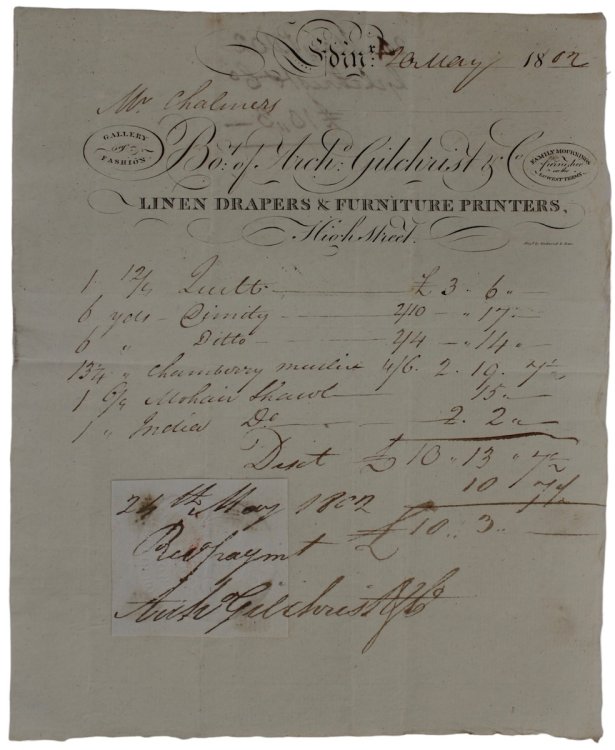 Edinr. 20 May 1802
Mr Chalmers
GALLERY
OF
FASHION
Bot. of Archd. Gilchrist & Co
FAMILY MOURNINGS
furnished
on the
LOWEST TERMS
LINEN DRAPERS & FURNITURE PRINTERS,
High Street.
1 12/4 Quilt £ 3 " 6 "
6 yds Dimity 2/10 " 17 "
6 " Ditto 2/4 " 14 "
13¼ " Chambery muslin 4/6 2 " 19 " 7½
1 6/4 Mohair Shawl 15 "
1 " India Do 2 " 2 "
Disct £ 10 " 13 " 7½
10 7½
24th May 1802 £ 10 " 3 "
Recd payment
Archd Gilchrist & Co